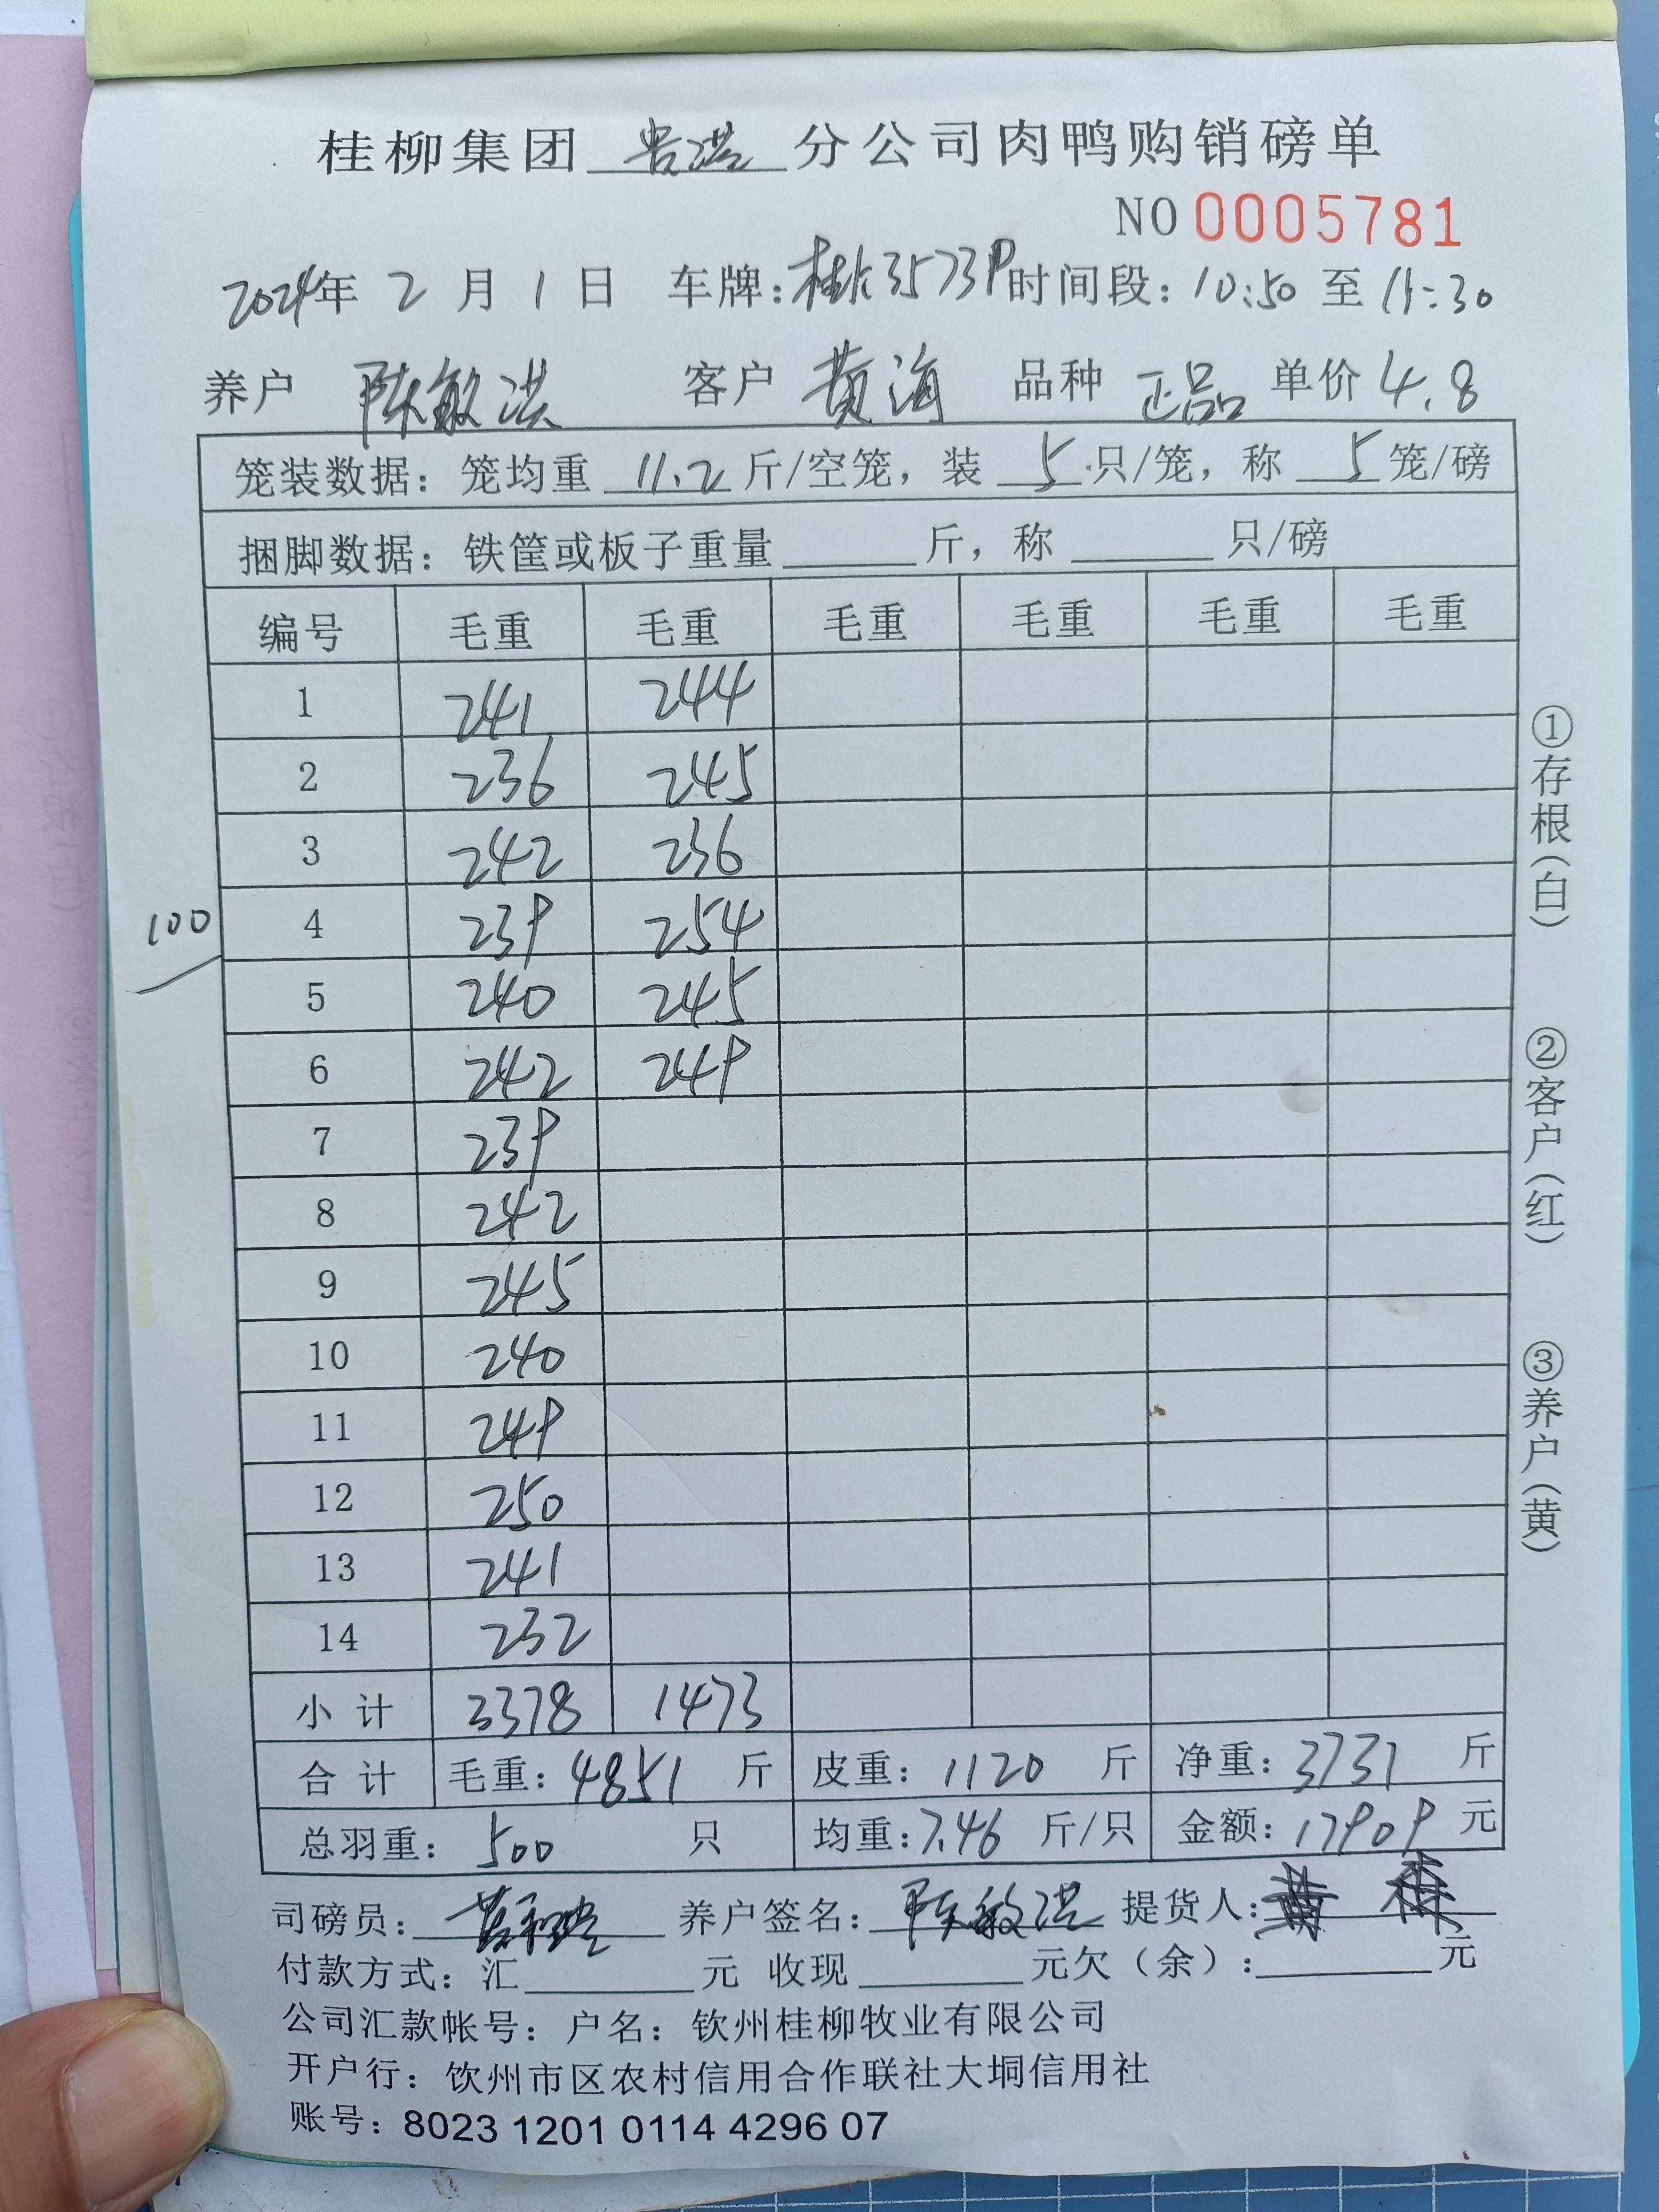 桂柳集团 贵港 分公司肉鸭购销磅单
NO 0005781
2024年 2 月 1 日 车牌:桂K3573P 时间段:10:50 至 15:30
养户 陈敏洪 客户 黄海 品种 正品 单价 4.8
笼装数据:笼均重 11.2 斤/空笼,装 5 只/笼,称 5 笼/磅
捆脚数据:铁筐或板子重量______斤,称______只/磅
编号 毛重 毛重 毛重 毛重 毛重 毛重
1 241 244
2 236 245
3 242 236
100
4 239 254
5 240 245
6 242 249
7 239
8 242
9 245
10 240
11 249
12 250
13 241
14 232
小计 3378 1473
合计 毛重:4851 斤 皮重:1120 斤 净重:3731 斤
总羽重:500 只 均重:7.46 斤/只 金额:17909 元
司磅员: 养户签名:陈敏洪 提货人:
付款方式:汇______元 收现______元欠(余):______元
公司汇款帐号:户名:钦州桂柳牧业有限公司
开户行:钦州市区农村信用合作联社大垌信用社
账号:8023 1201 0114 4296 07
①存根(白)
②客户(红)
③养户(黄)